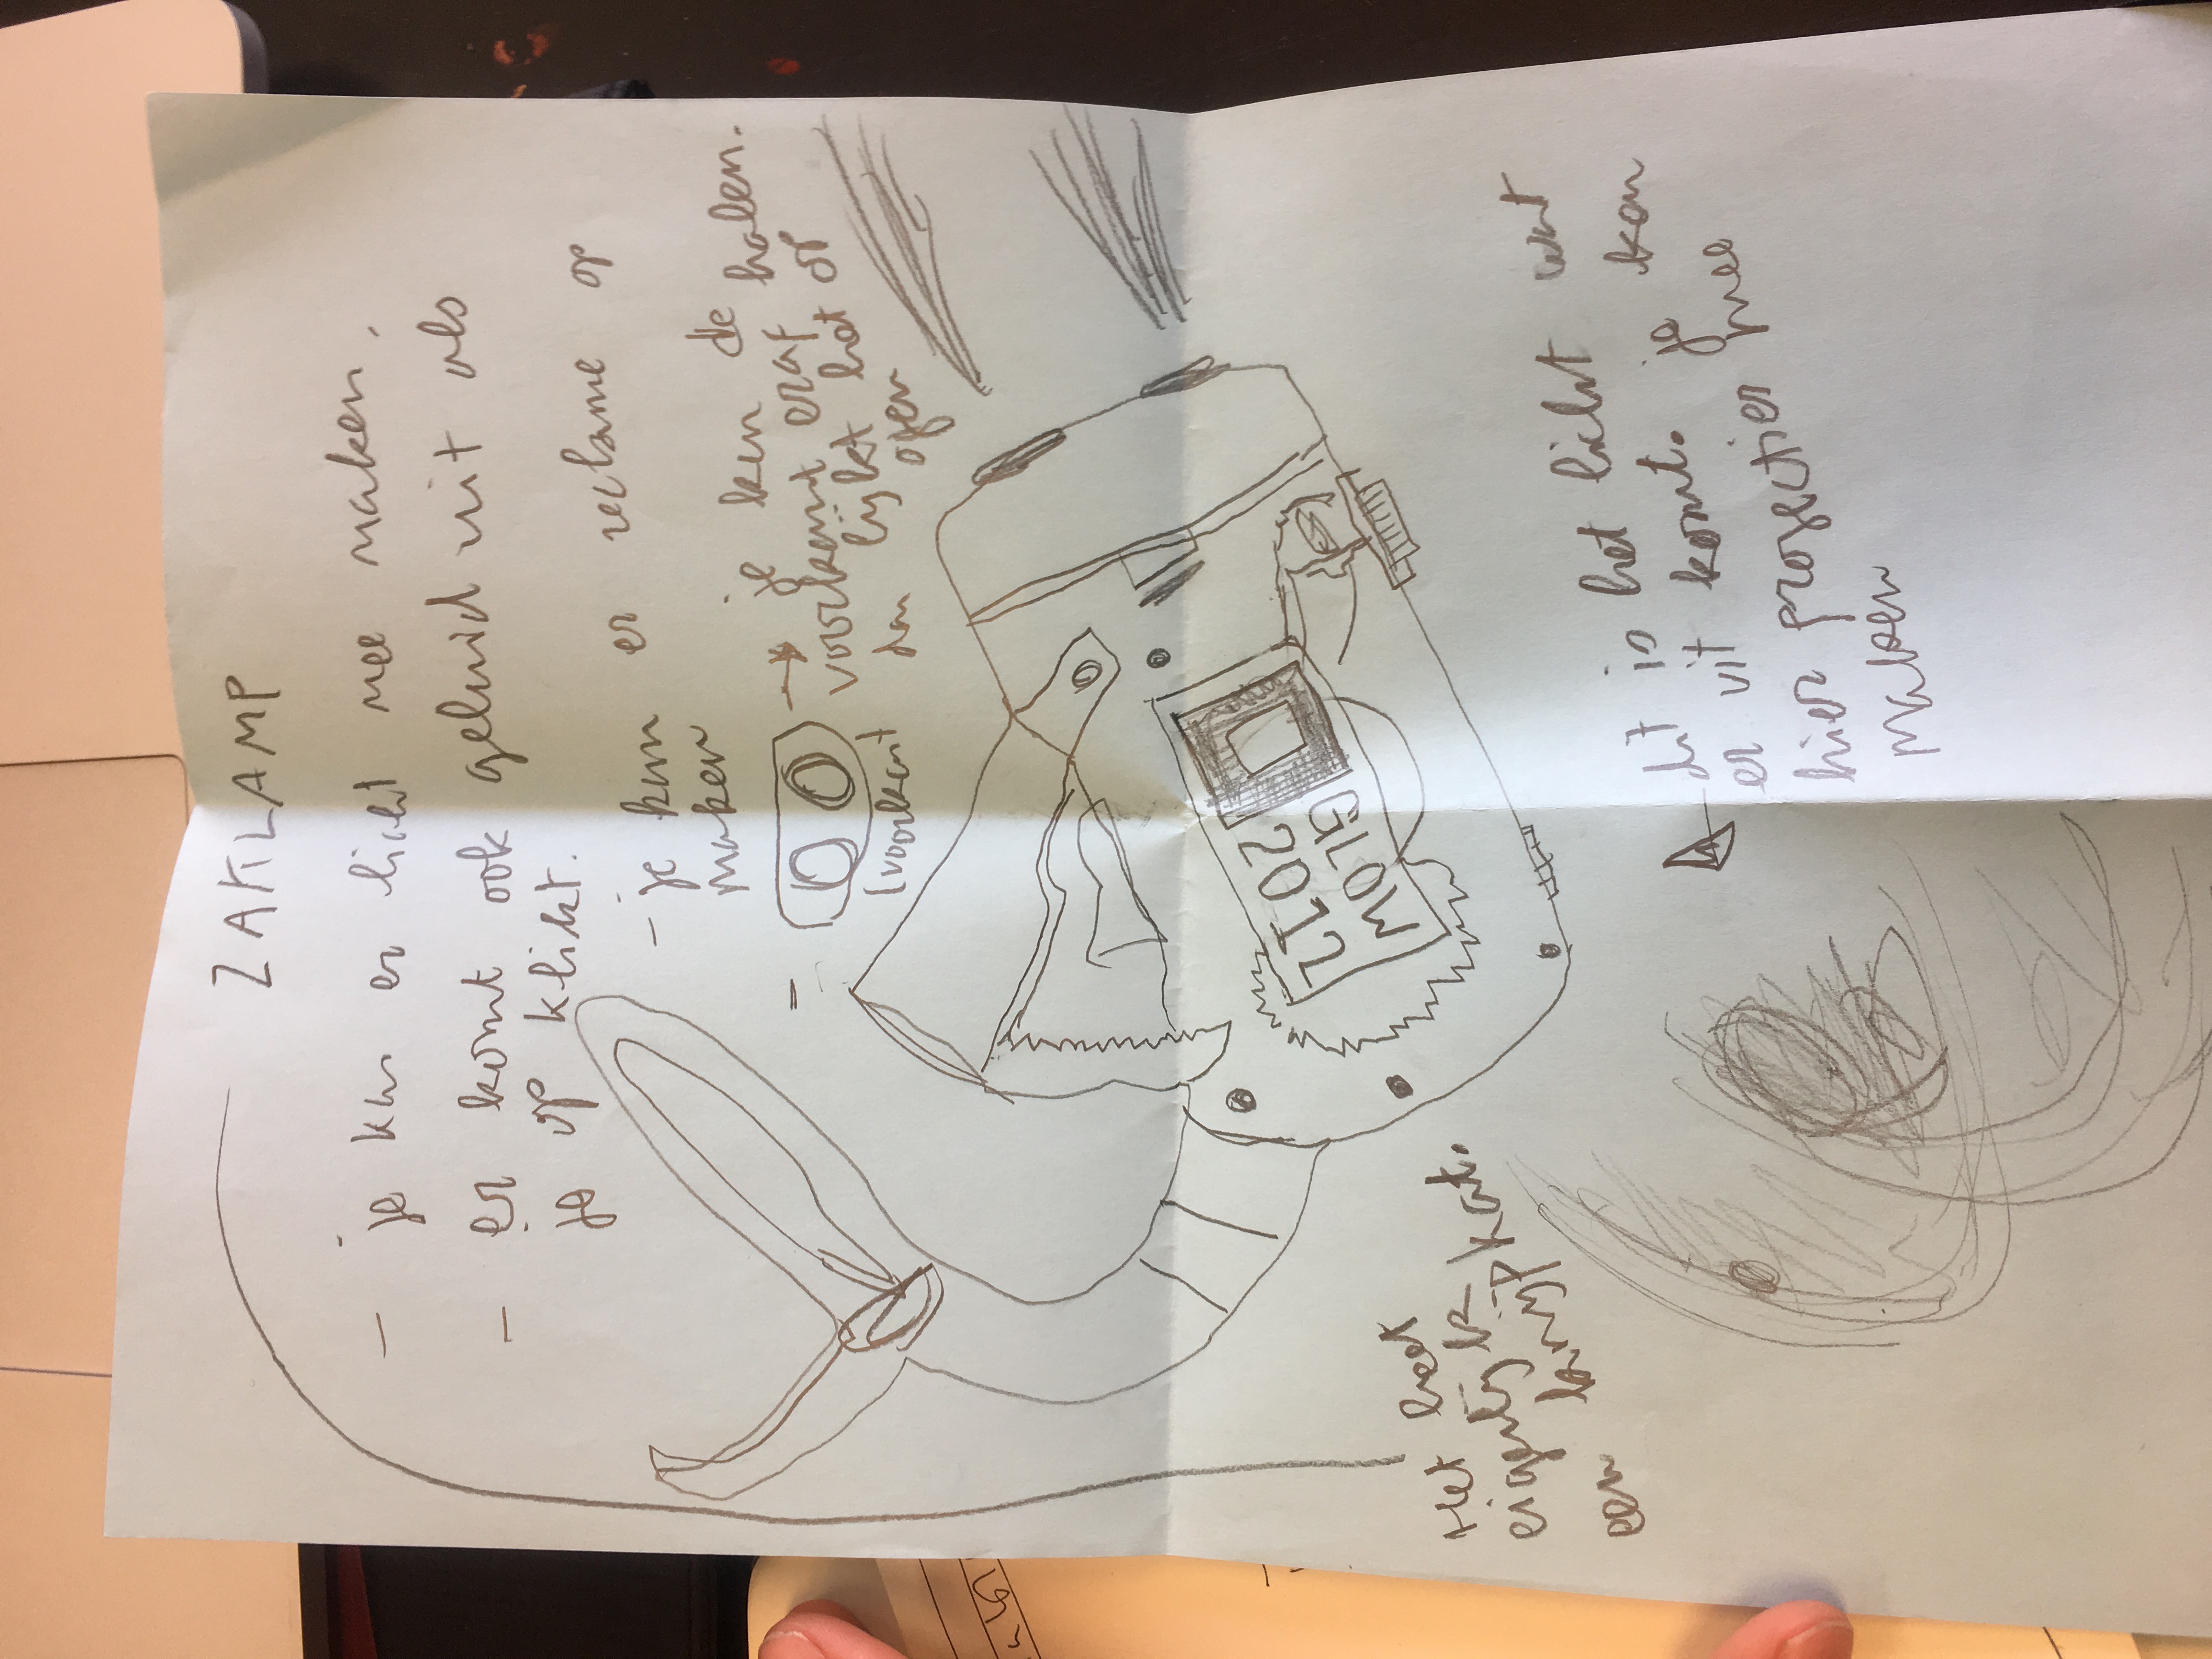 ZAKLAMP
- je kan er licht mee maken.
- er komt ook geluid uit als
je op klikt.
- je kan er reclame op
maken
- → je kan de
voorkant eraf halen.
dan lijkt het op
ogen
(voorkant
GLOW
2012
Het heet
eigenlijk
een knijpkat.
dit is het licht wat
er uit komt. je kan
hier projecties mee
maken